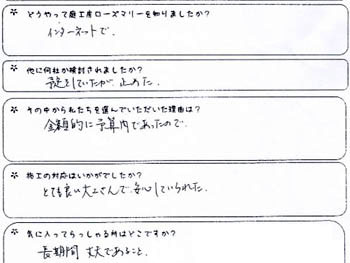 * どうやって庭工房ローズマリーを知りましたか?
インターネットで.
* 他に何社か検討されましたか?
予定をしていたが 止めた.
* その中から私たちを選んでいただいた理由は?
金額的に予算内であったので.
* 施工の対応はいかがでしたか?
とても良い大工さんで安心していられた.
* 気に入ってらっしゃる所はどこですか?
長期間 丈夫であること.